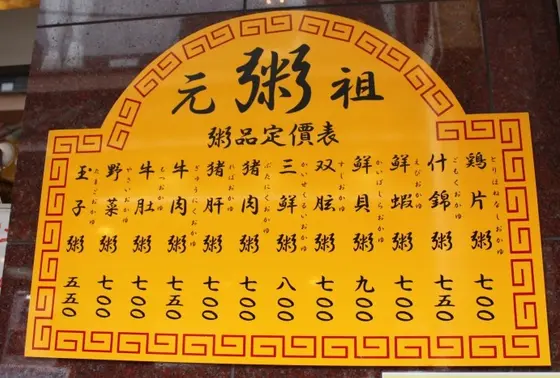 元粥祖
粥品定價表
鶏片粥 七〇〇
とりばねなしおかゆ
什錦粥 七五〇
ごもくおかゆ
鮮蝦粥 七〇〇
えびおかゆ
鮮貝粥 九〇〇
かいばしらおかゆ
双胘粥 七〇〇
すじおかゆ
三鮮粥 八〇〇
猪肉粥 七〇〇
ぶたにくおかゆ
猪肝粥 七〇〇
ればおかゆ
牛肉粥 七五〇
ぎゅうにくおかゆ
牛肚粥 七〇〇
もつおかゆ
野菜粥 七〇〇
やさいおかゆ
玉子粥 五五〇
たまごおかゆ